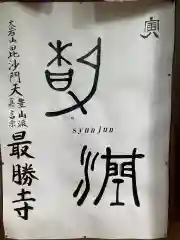 寅
潤
syunjun
大岩山
毘沙門天
真言宗
豊山派
最勝寺